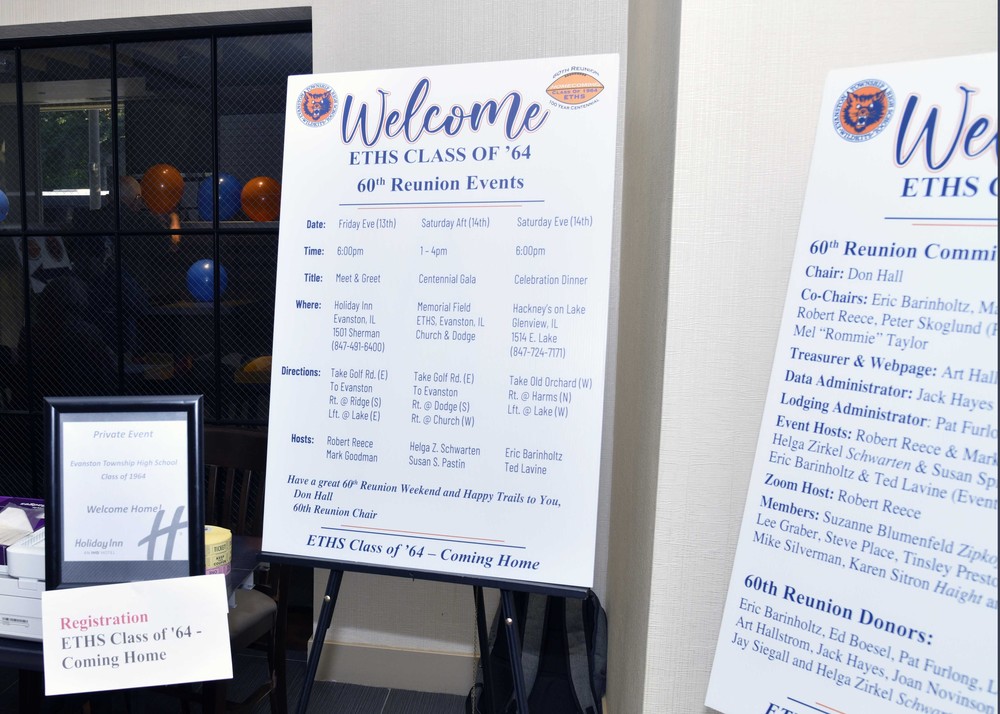 Welcome
60TH REUNION
CLASS OF 1964
ETHS
100 YEAR CENTENNIAL
ETHS CLASS OF '64
60th Reunion Events
Date: Friday Eve (13th) Saturday Aft (14th) Saturday Eve (14th)
Time: 6:00pm 1 - 4pm 6:00pm
Title: Meet & Greet Centennial Gala Celebration Dinner
Where: Holiday Inn Memorial Field Hackney's on Lake
Evanston, IL ETHS, Evanston, IL Glenview, IL
1501 Sherman Church & Dodge 1514 E. Lake
(847-491-6400) (847-724-7171)
Directions: Take Golf Rd. (E) Take Golf Rd. (E) Take Old Orchard (W)
To Evanston To Evanston Rt. @ Harms (N)
Rt. @ Ridge (S) Rt. @ Dodge (S) Lft. @ Lake (W)
Lft. @ Lake (E) Rt. @ Church (W)
Hosts: Robert Reece Helga Z. Schwarten Eric Barinholtz
Mark Goodman Susan S. Pastin Ted Lavine
Have a great 60th Reunion Weekend and Happy Trails to You,
Don Hall
60th Reunion Chair
ETHS Class of '64 – Coming Home
Private Event
Evanston Township High School
Class of 1964
Welcome Home!
H
Holiday Inn
Registration
ETHS Class of '64 -
Coming Home
We
ETHS C
60th Reunion Commi
Chair: Don Hall
Co-Chairs: Eric Barinholtz, Ma
Robert Reece, Peter Skoglund (
Mel "Rommie" Taylor
Treasurer & Webpage: Art Hall
Data Administrator: Jack Hayes
Lodging Administrator: Pat Furlo
Event Hosts: Robert Reece & Mark
Helga Zirkel Schwarten & Susan Sp
Eric Barinholtz & Ted Lavine (Even
Zoom Host: Robert Reece
Members: Suzanne Blumenfeld Zipko
Lee Graber, Steve Place, Tinsley Presto
Mike Silverman, Karen Sitron Haight a
60th Reunion Donors:
Eric Barinholtz, Ed Boesel, Pat Furlong, L
Art Hallstrom, Jack Hayes, Joan Novinson
Jay Siegall and Helga Zirkel Schwar
ETHS